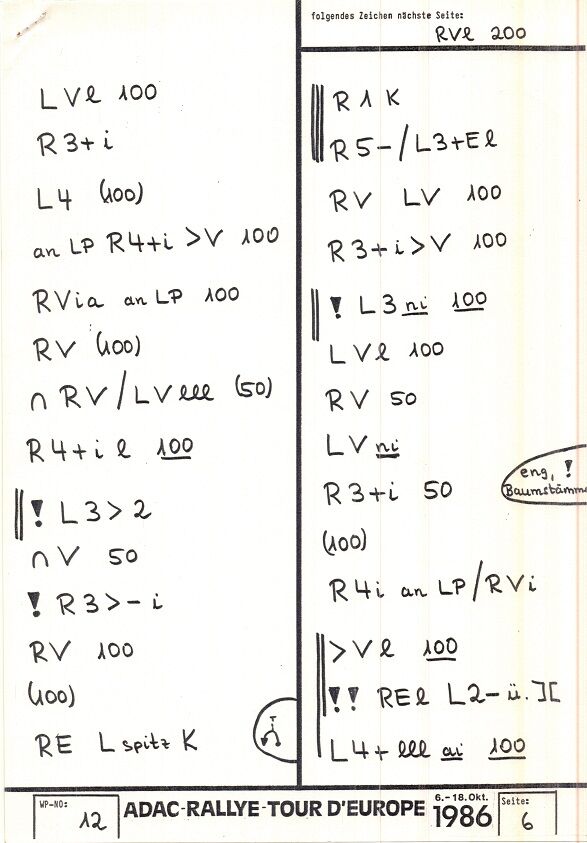 folgendes Zeichen nächste Seite:
RVl 200
LVl 100
R3+i
L4 (100)
an LP R4+i >V 100
RVia an LP 100
RV (100)
∩ RV/LVlll (50)
R4+i l 100
! L3>2
∩V 50
! R3>-i
RV 100
(100)
RE L spitz K
R1K
R5-/L3+El
RV LV 100
R3+i>V 100
! L3 ni 100
LVl 100
RV 50
LV ni
R3+i 50
eng, !
Baumstämme
(100)
R4i an LP/RVi
>Vl 100
!! REl L2- ü. ][
L4+ lll ai 100
WP-NO: 12
ADAC-RALLYE-TOUR D'EUROPE
6.-18.Okt.
1986
Seite: 6